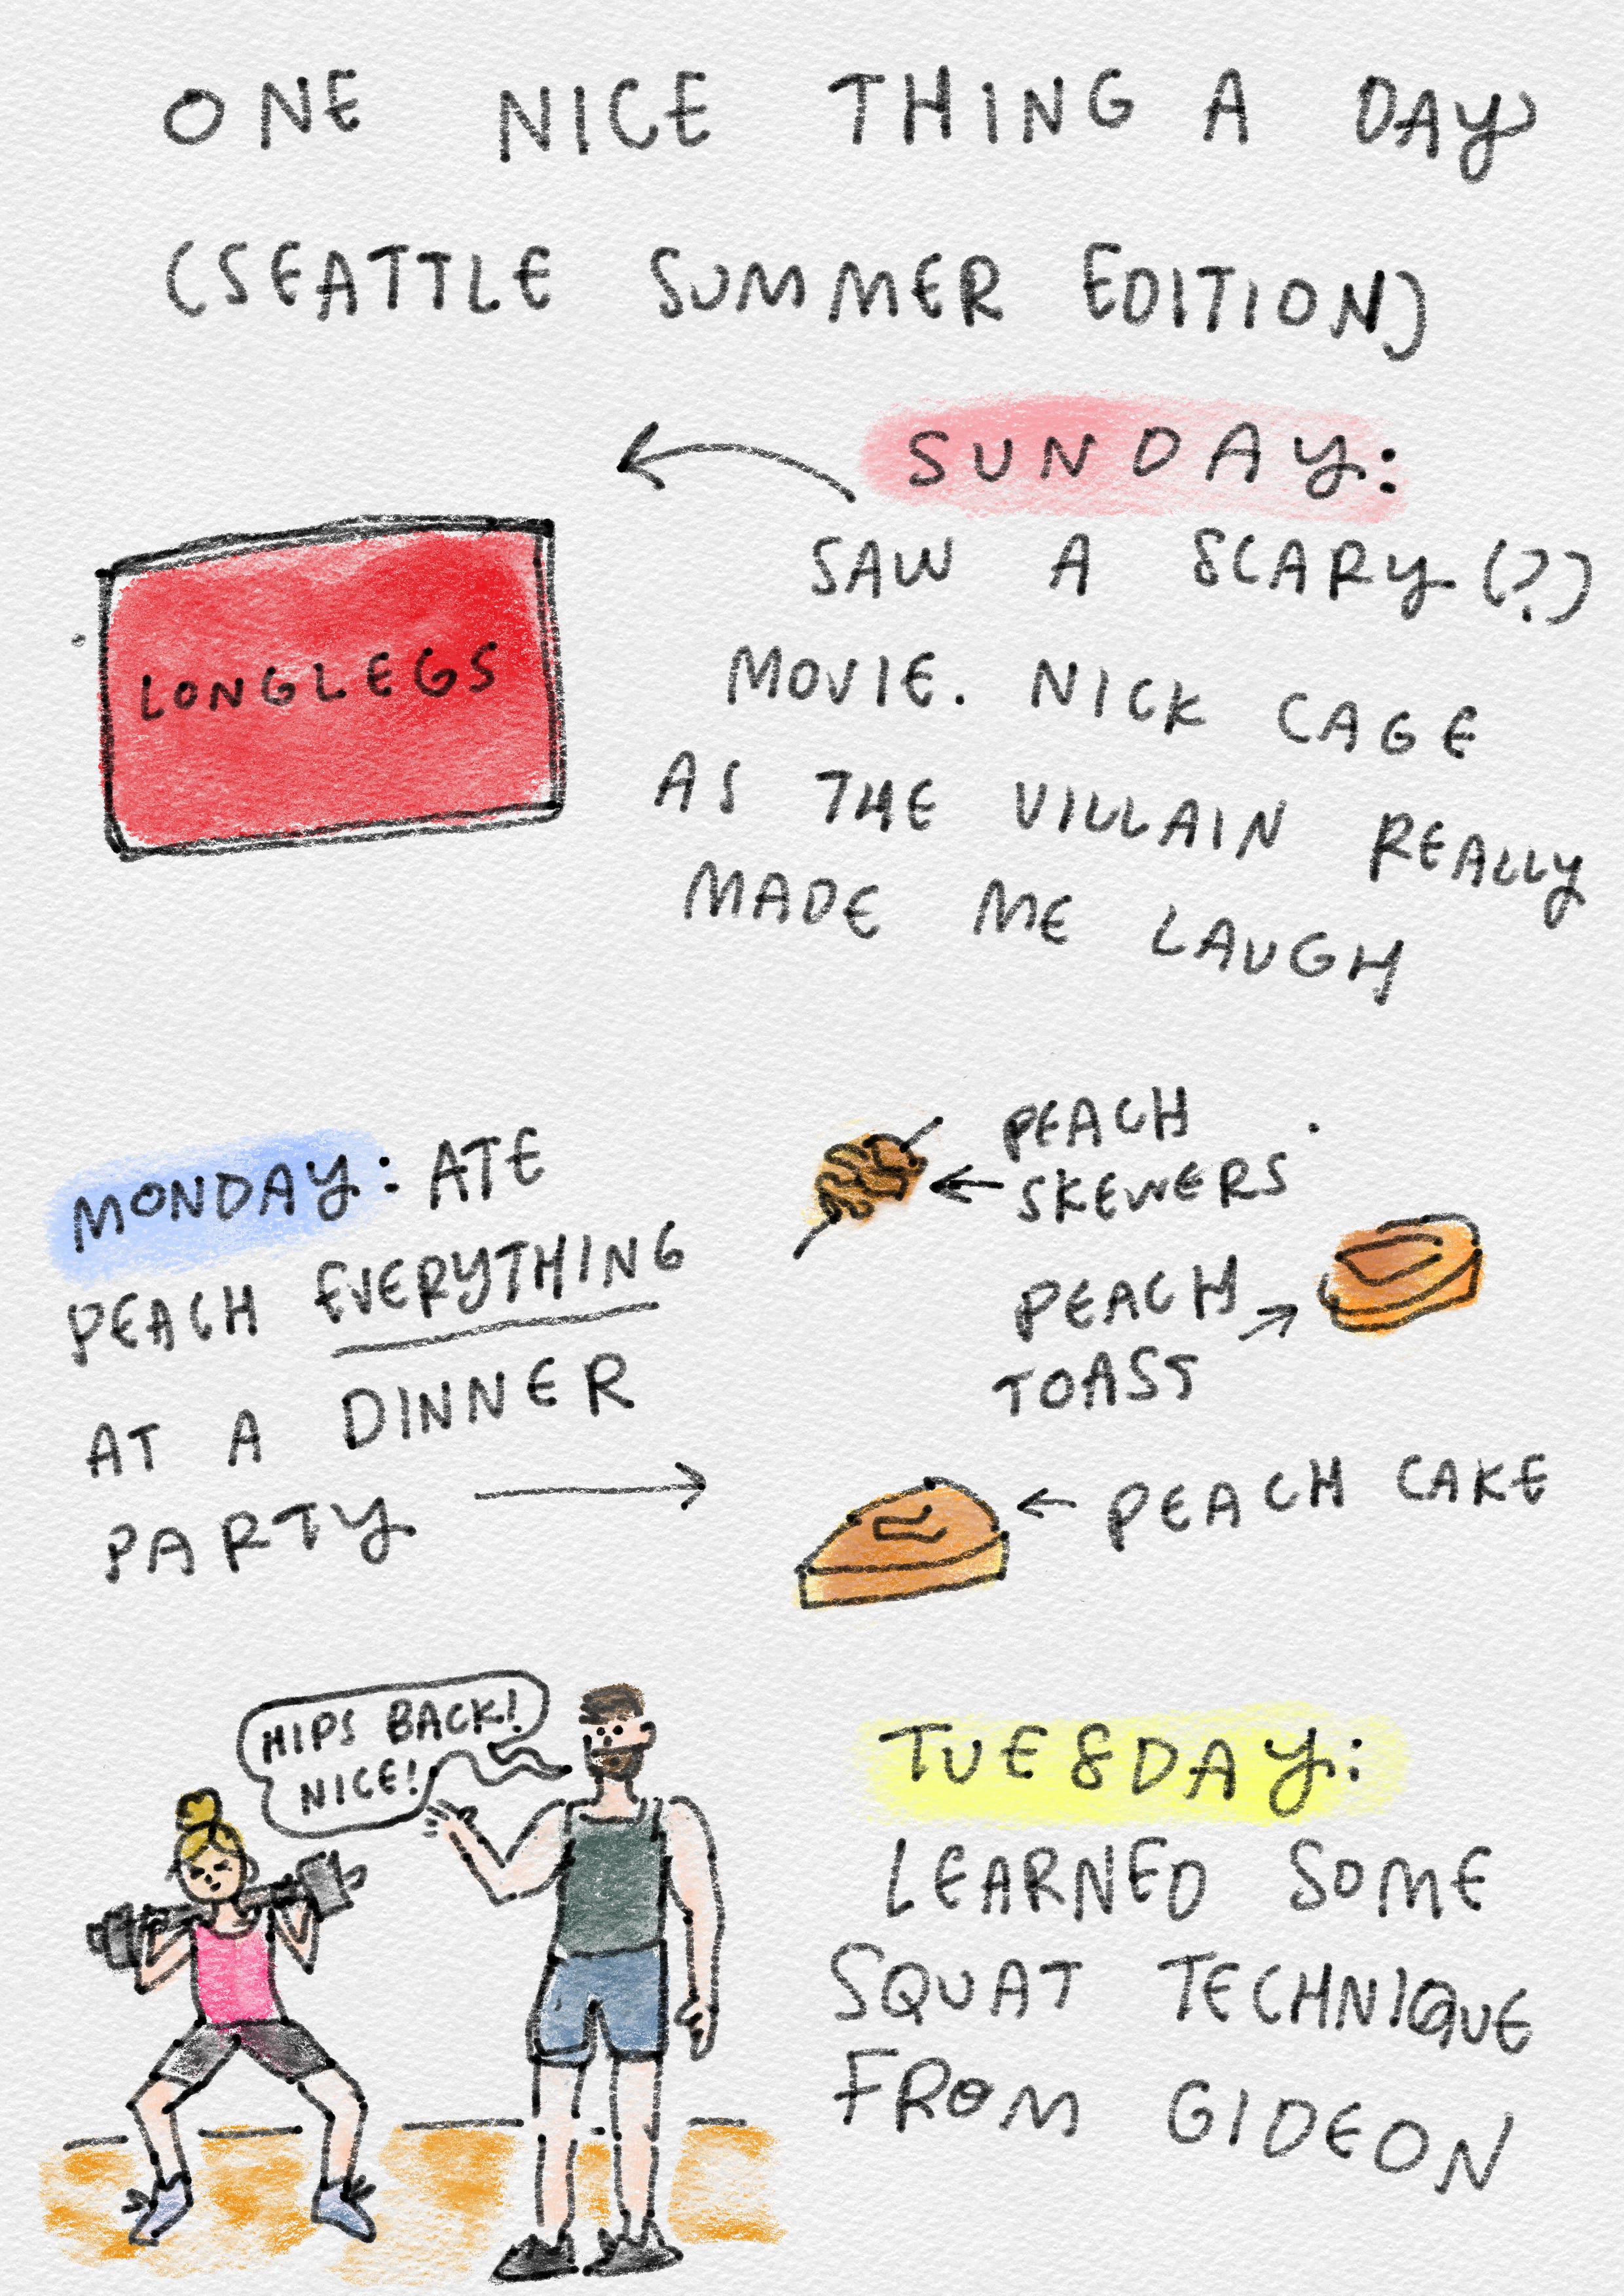 ONE NICE THING A DAY
(SEATTLE SUMMER EDITION)
SUNDAY:
SAW A SCARY (?)
MOVIE. NICK CAGE
AS THE VILLAIN REALLY
MADE ME LAUGH
LONGLEGS
MONDAY: ATE
PEACH EVERYTHING
AT A DINNER
PARTY
PEACH
SKEWERS
PEACH
TOAST
PEACH CAKE
HIPS BACK!
NICE!
TUESDAY:
LEARNED SOME
SQUAT TECHNIQUE
FROM GIDEON